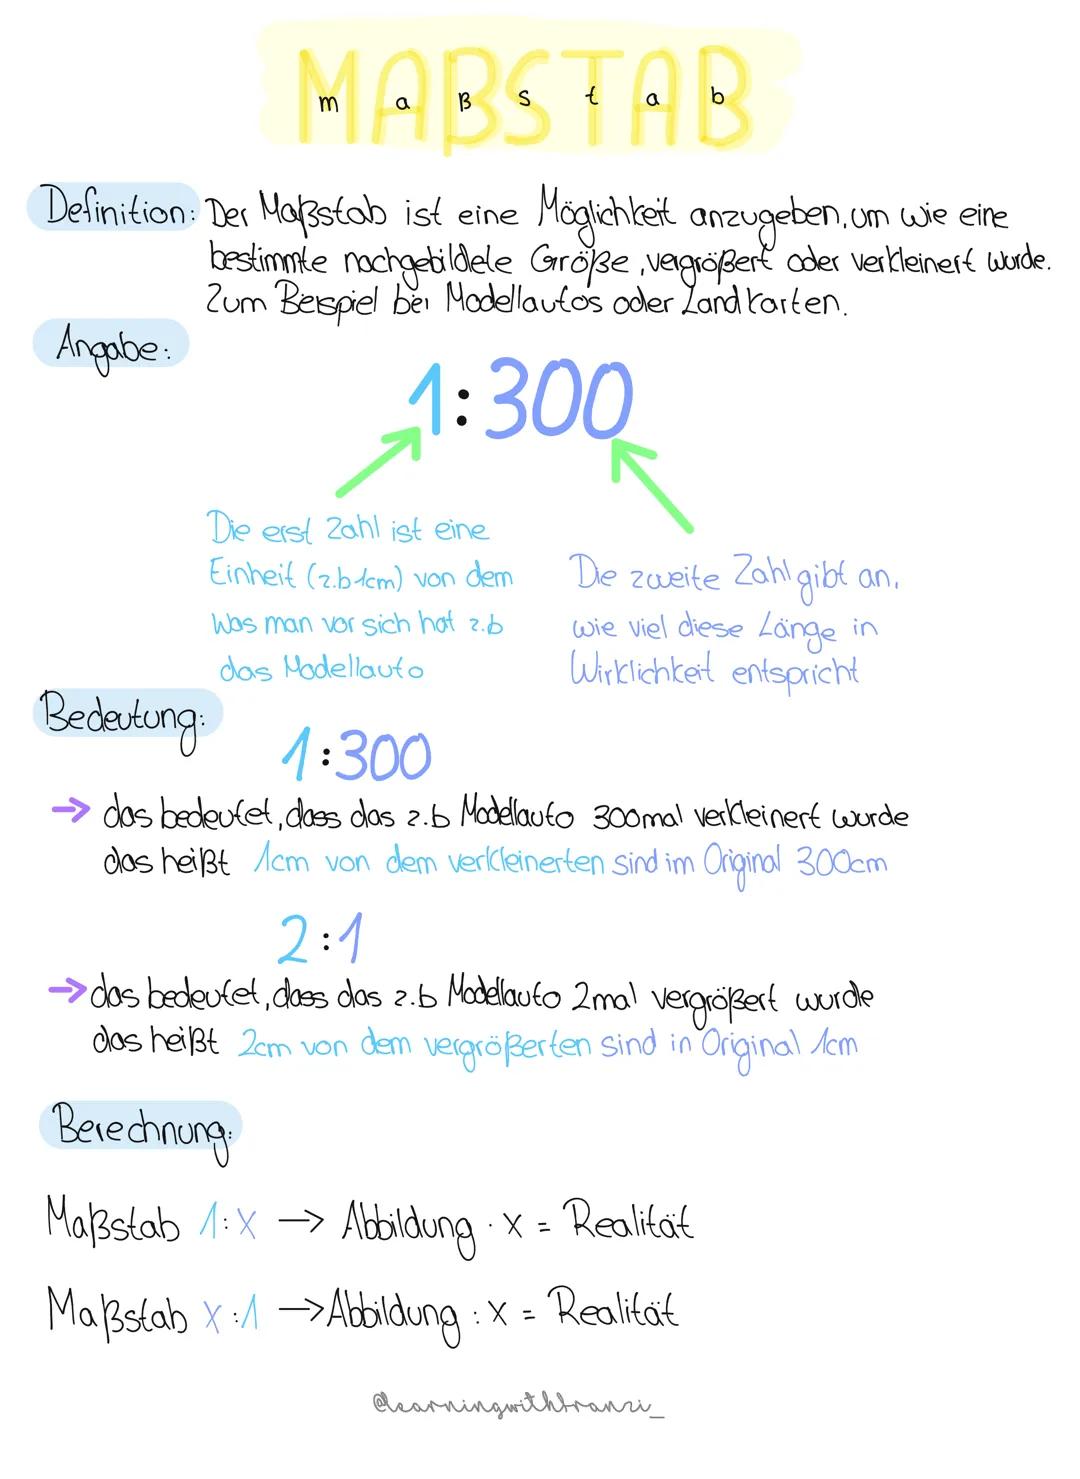 MAßSTAB
maßstab
Definition: Der Maßstab ist eine Möglichkeit anzugeben, um wie eine
bestimmte nachgebildete Größe, vergrößert oder verkleinert wurde.
Zum Beispiel bei Modellautos oder Landkarten.
Angabe:
1:300
Die erst Zahl ist eine
Einheit (z.b 1cm) von dem
Was man vor sich hat z.b
das Modellauto
Die zweite Zahl gibt an,
wie viel diese Länge in
Wirklichkeit entspricht
Bedeutung:
1:300
→ das bedeutet, dass das z.b Modellauto 300mal verkleinert wurde
das heißt 1cm von dem verkleinerten sind im Original 300cm
2:1
→ das bedeutet, dass das z.b Modellauto 2mal vergrößert wurde
das heißt 2cm von dem vergrößerten sind in Original 1cm
Berechnung:
Maßstab 1:X → Abbildung · X = Realität
Maßstab X:1 → Abbildung : X = Realität
@learningwithfranzi_